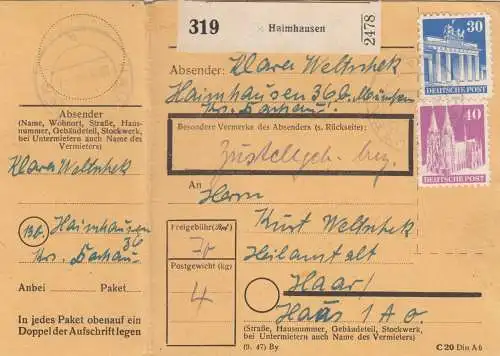 319
Haimhausen
2478
30
DEUTSCHE POST
40
DEUTSCHE POST
Absender: Klara Weltschek
Haimhausen 36 b. München
Krs. Dachau
Besondere Vermerke des Absenders (s. Rückseite):
Zustellgeb. bez.
Absender
(Name, Wohnort, Straße, Haus-
nummer, Gebäudeteil, Stockwerk,
bei Untermietern auch Name des
Vermieters)
Klara Weltschek
Haimhausen
36
Krs. Dachau
Anbei Paket
In jedes Paket obenauf ein
Doppel der Aufschrift legen
An
Herrn
Kurt Weltschek
Heilanstalt
Haar/
Haus 1 A o.
Freigebühr (Rpf)
70
Postgewicht (kg)
4
(Straße, Hausnummer, Gebäudeteil, Stockwerk,
bei Untermietern auch Name des Vermieters)
(9. 47) By
C 20 Din A 6